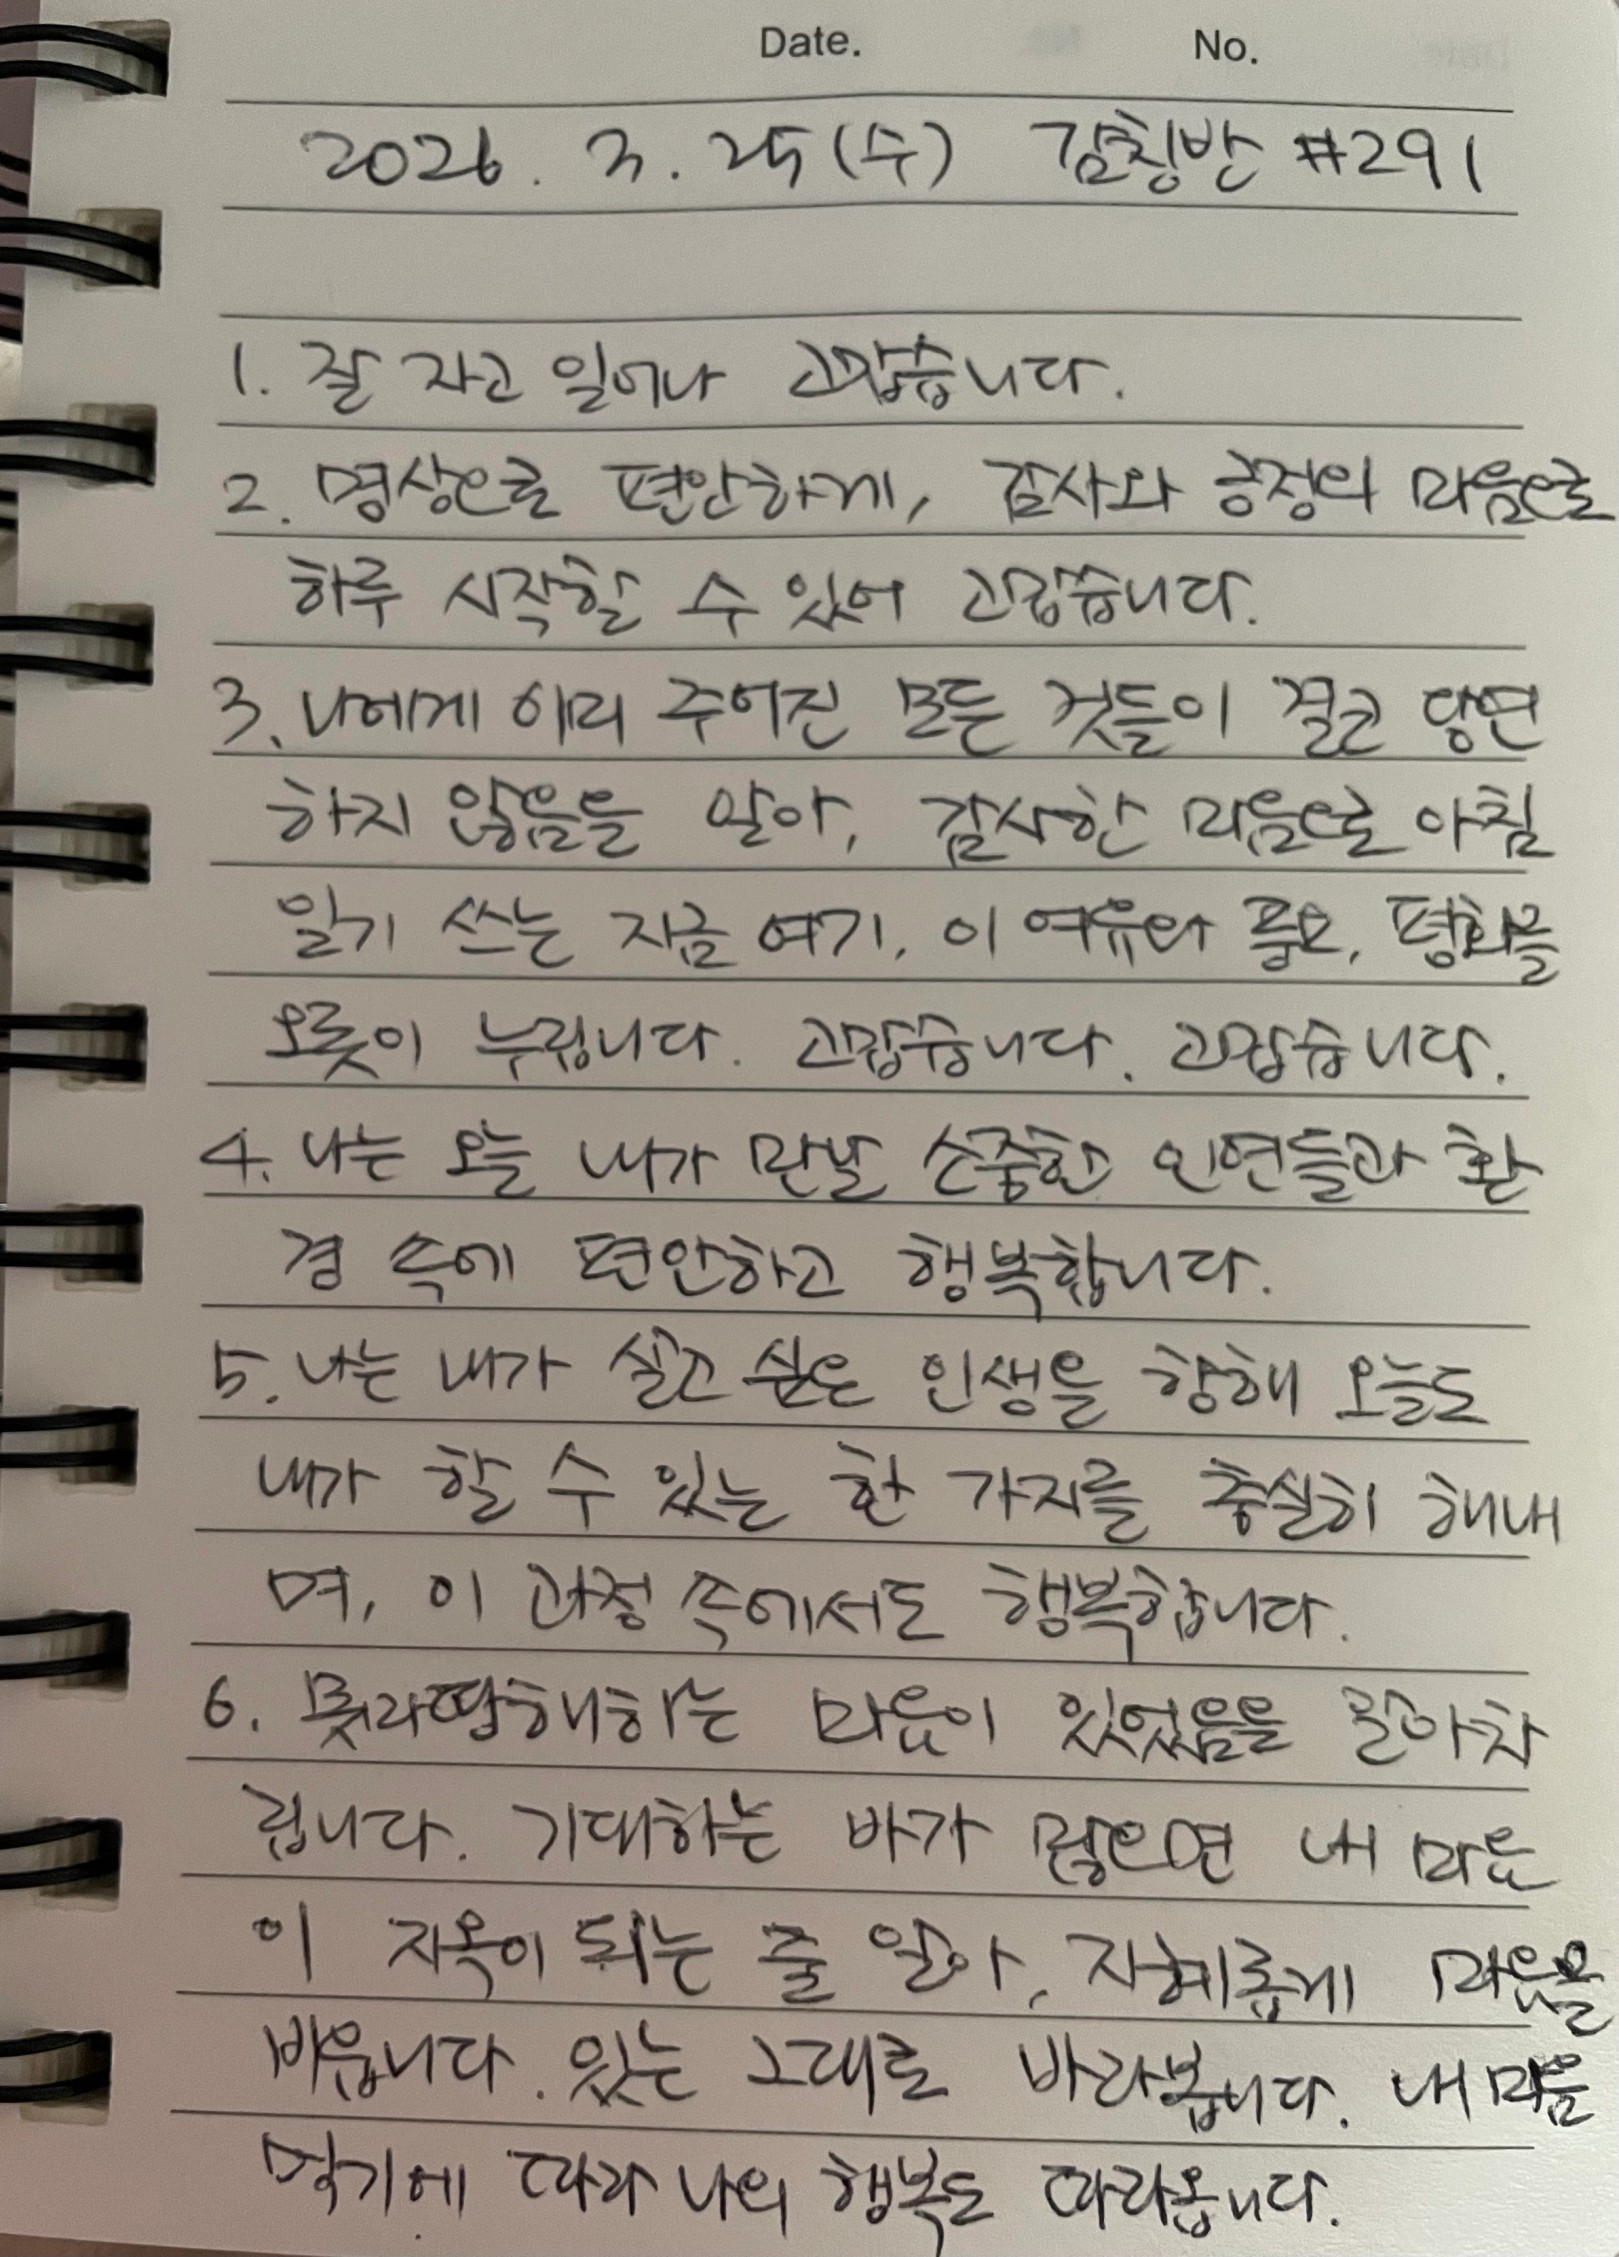 Date. No.
2026. 3. 25(수) 감칭반 #291
1. 잘 자고 일어나 고맙습니다.
2. 명상으로 편안하게, 감사와 긍정의 마음으로
하루 시작할 수 있어 고맙습니다.
3. 나에게 이미 주어진 모든 것들이 결코 당연
하지 않음을 알아, 감사한 마음으로 아침
일기 쓰는 지금 여기, 이 여유와 풍요, 평화를
오롯이 누립니다. 고맙습니다. 고맙습니다.
4. 나는 오늘 내가 만날 소중한 인연들과 환
경 속에 편안하고 행복합니다.
5. 나는 내가 살고 싶은 인생을 향해 오늘도
내가 할 수 있는 한 가지를 충실히 해내
며, 이 과정 속에서도 행복합니다.
6. 못마땅해하는 마음이 있었음을 알아차
립니다. 기대하는 바가 많으면 내 마음
이 지옥이 되는 줄 알아, 지혜롭게 마음을
비웁니다. 있는 그대로 바라봅니다. 내 마음
먹기에 따라 나의 행복도 따라옵니다.